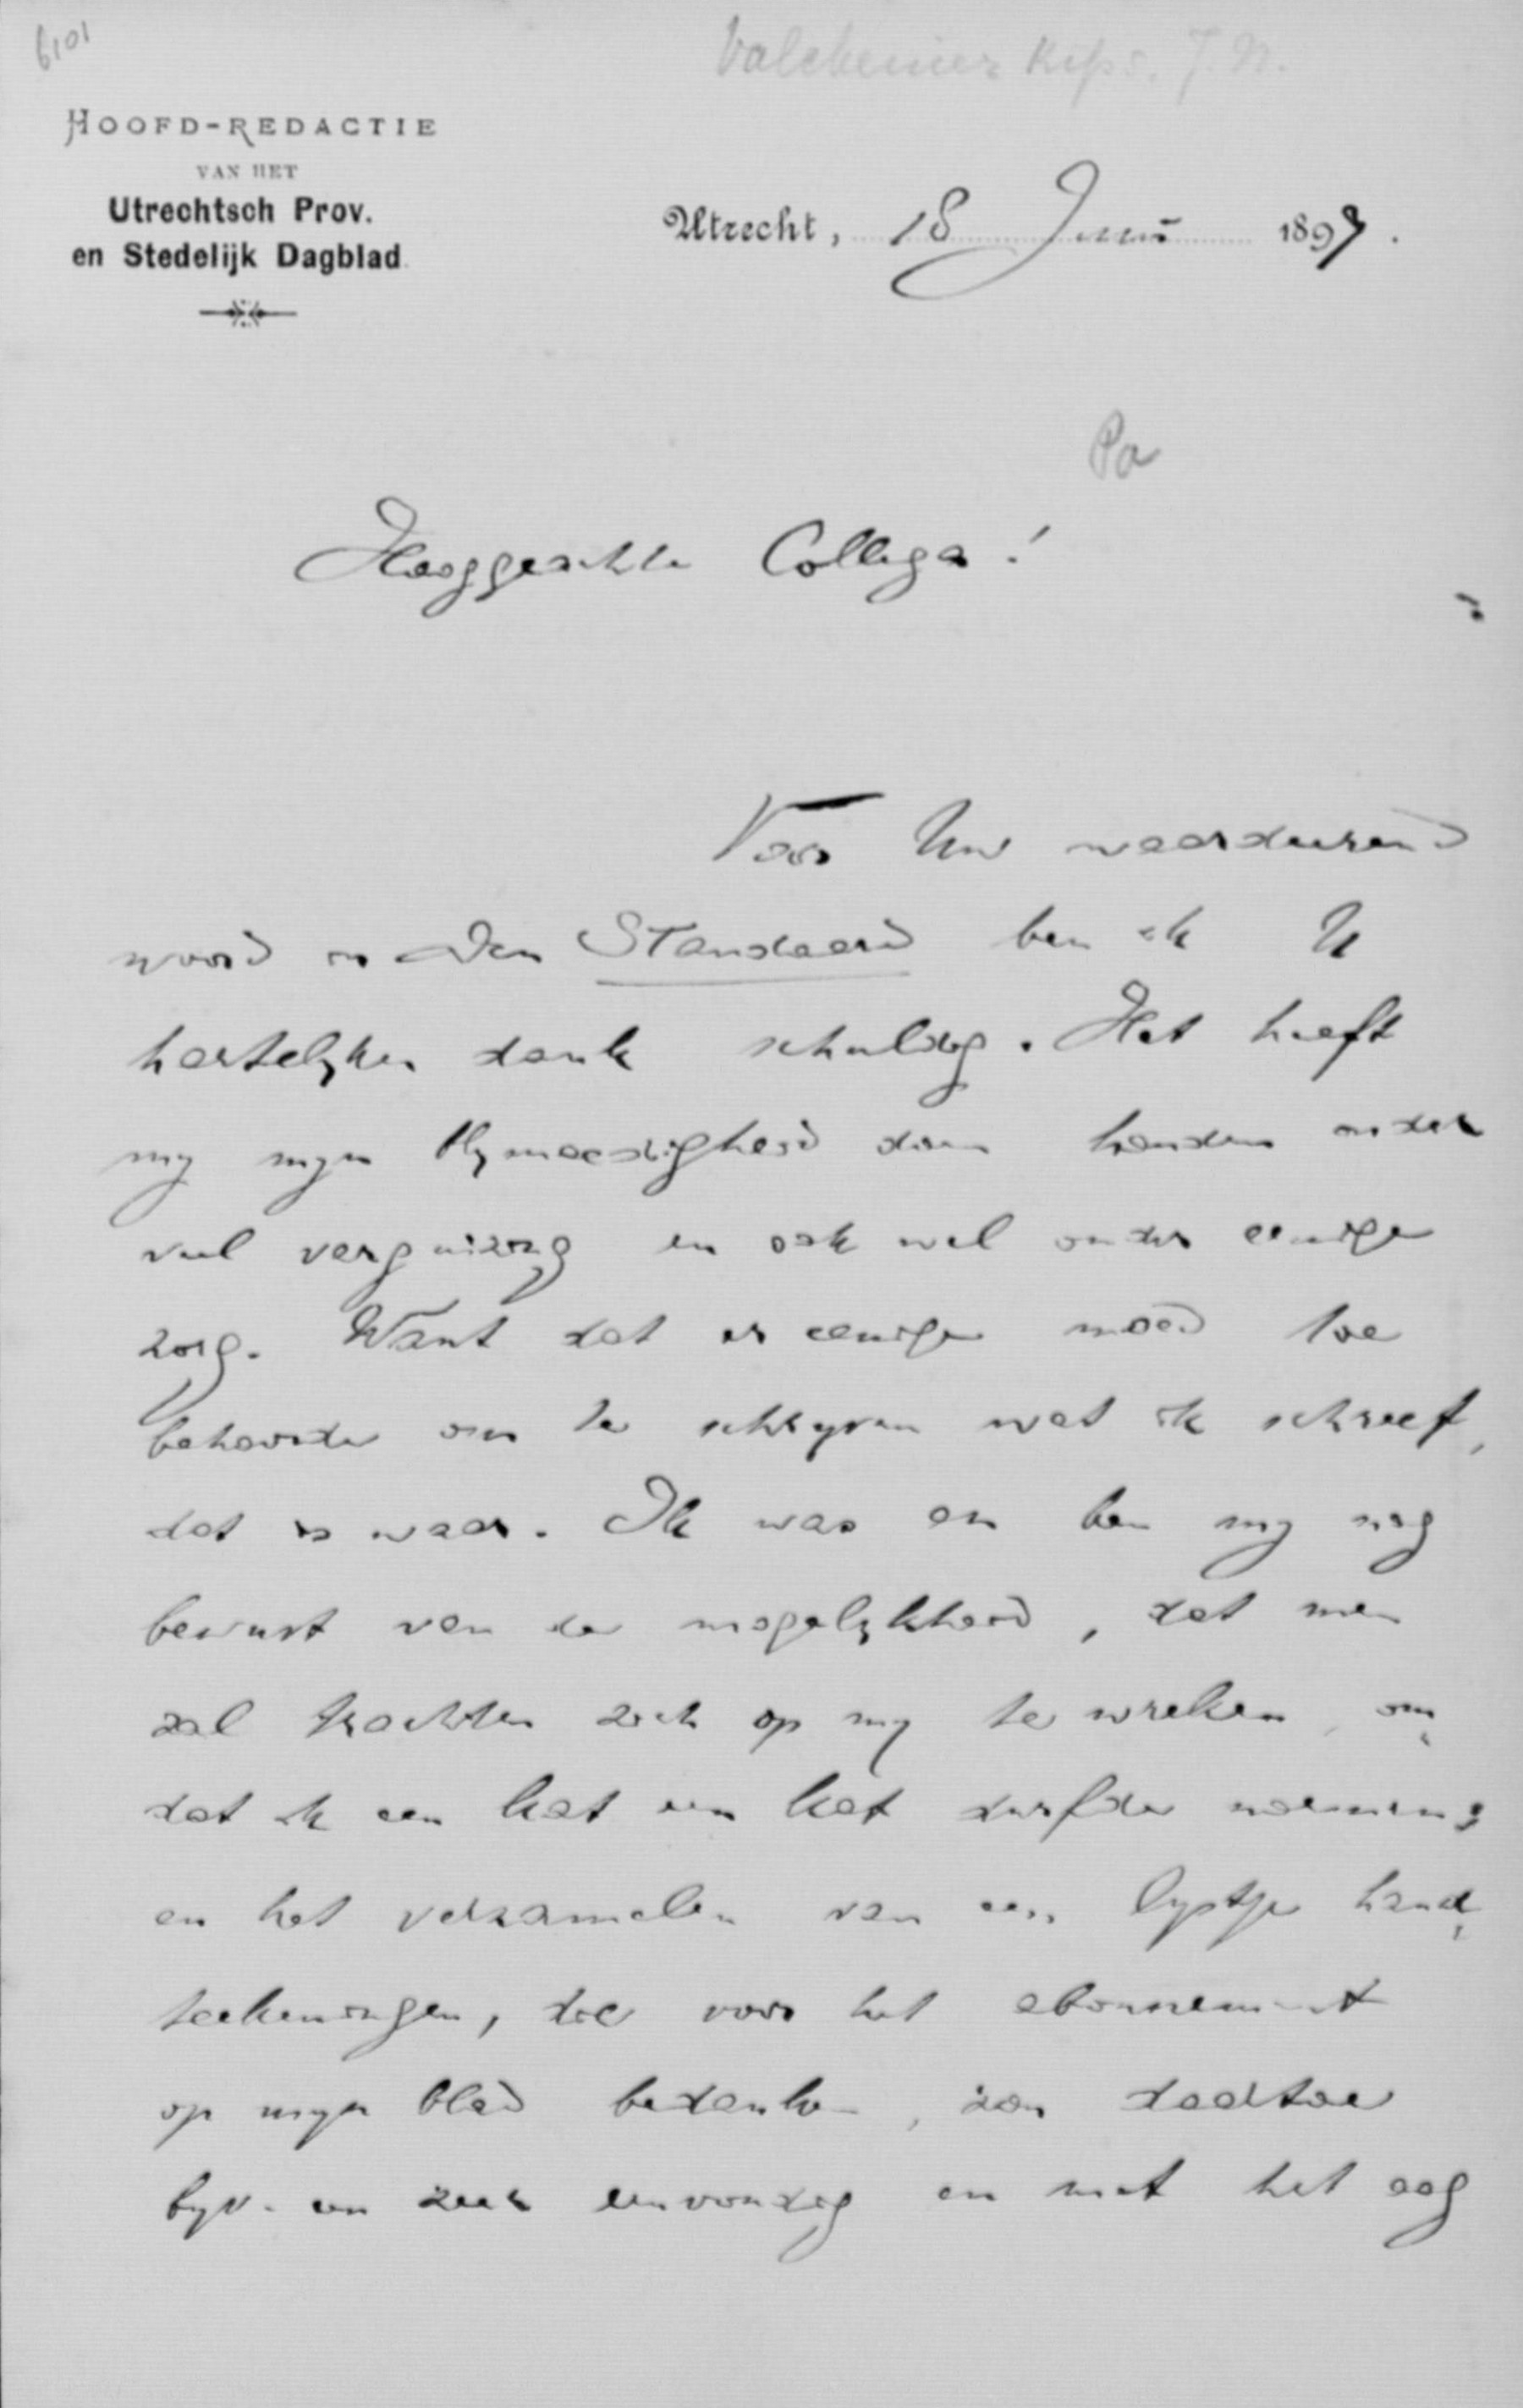 6101
Valckenier Kips. J. N.
HOOFD-REDACTIE
VAN HET
Utrechtsch Prov.
en Stedelijk Dagblad
Utrecht, 18 Juni 1897.
Pa
Hooggeachte Collega!
Voor Uw waardeerend
woord in den Standaard ben ik U
hartelyken dank schuldig. Het heeft
my myn blymoedigheid doen houden onder
veel verguizing en ook wel onder eenige
zorg. Want dat er eenige moed toe
behoorde om te schryven wat ik schreef,
dat is waar. Ik was en ben my nog
bewust van de mogelykheid, dat men
zal trachten zich op my te wreken, om
dat ik een kat een kat durfde noemen;
en het verzamelen van een lystje hand
teekeningen, die voor het abonnement
op myn blad bedanken, zou daartoe
byv. een zeer eenvoudig en met het oog